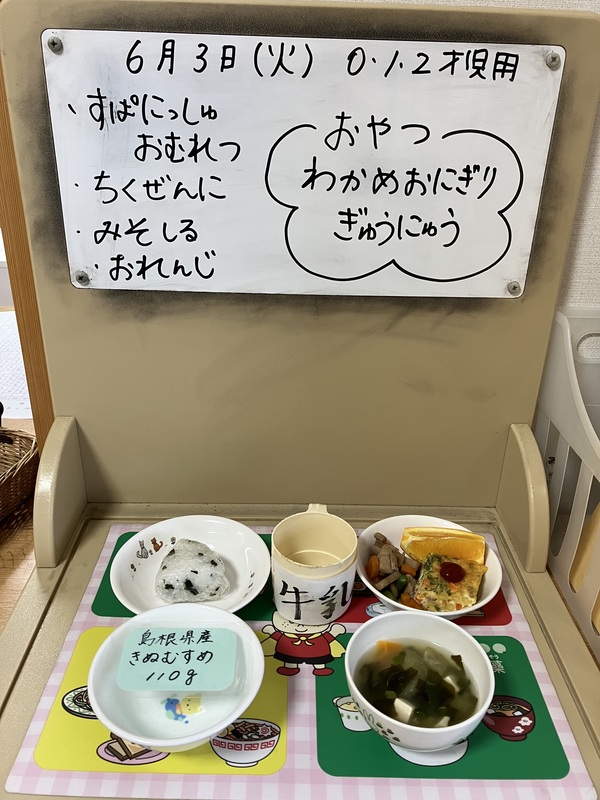 6月3日(火) 0.1.2才児用
・すぱにっしゅ
おむれつ
・ちくぜんに
・みそしる
・おれんじ
おやつ
わかめおにぎり
ぎゅうにゅう
牛乳
島根県産
きぬむすめ
110g